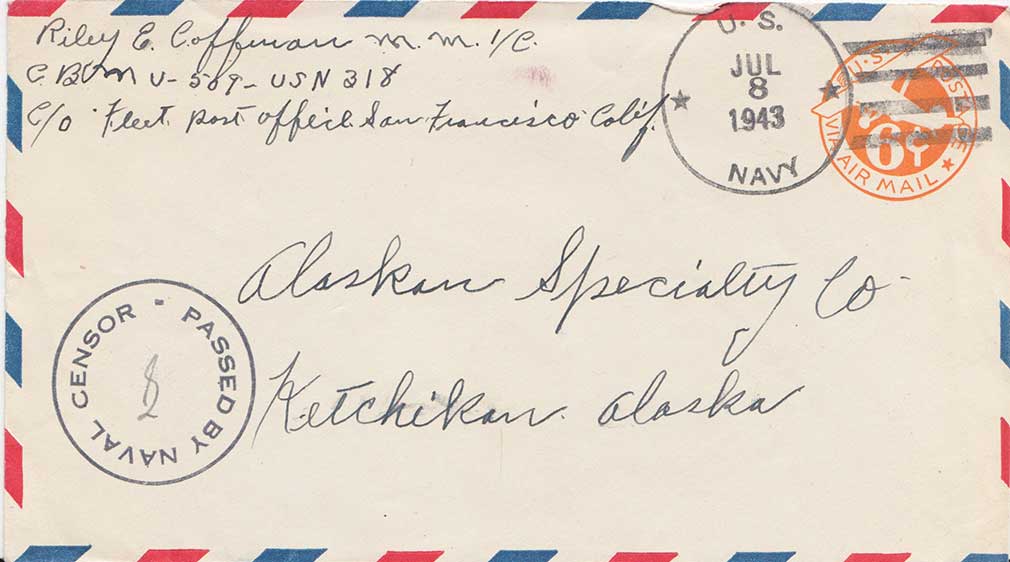 Riley E. Coffman M. M. 1/C.
C.B.M U-509- USN 318
C/o Fleet post office San Francisco Calif.
U. S.
JUL
8
1943
NAVY
U.S. POSTAGE
6¢
VIA AIR MAIL
Alaskan Specialty Co
Ketchikan. Alaska
PASSED BY NAVAL CENSOR